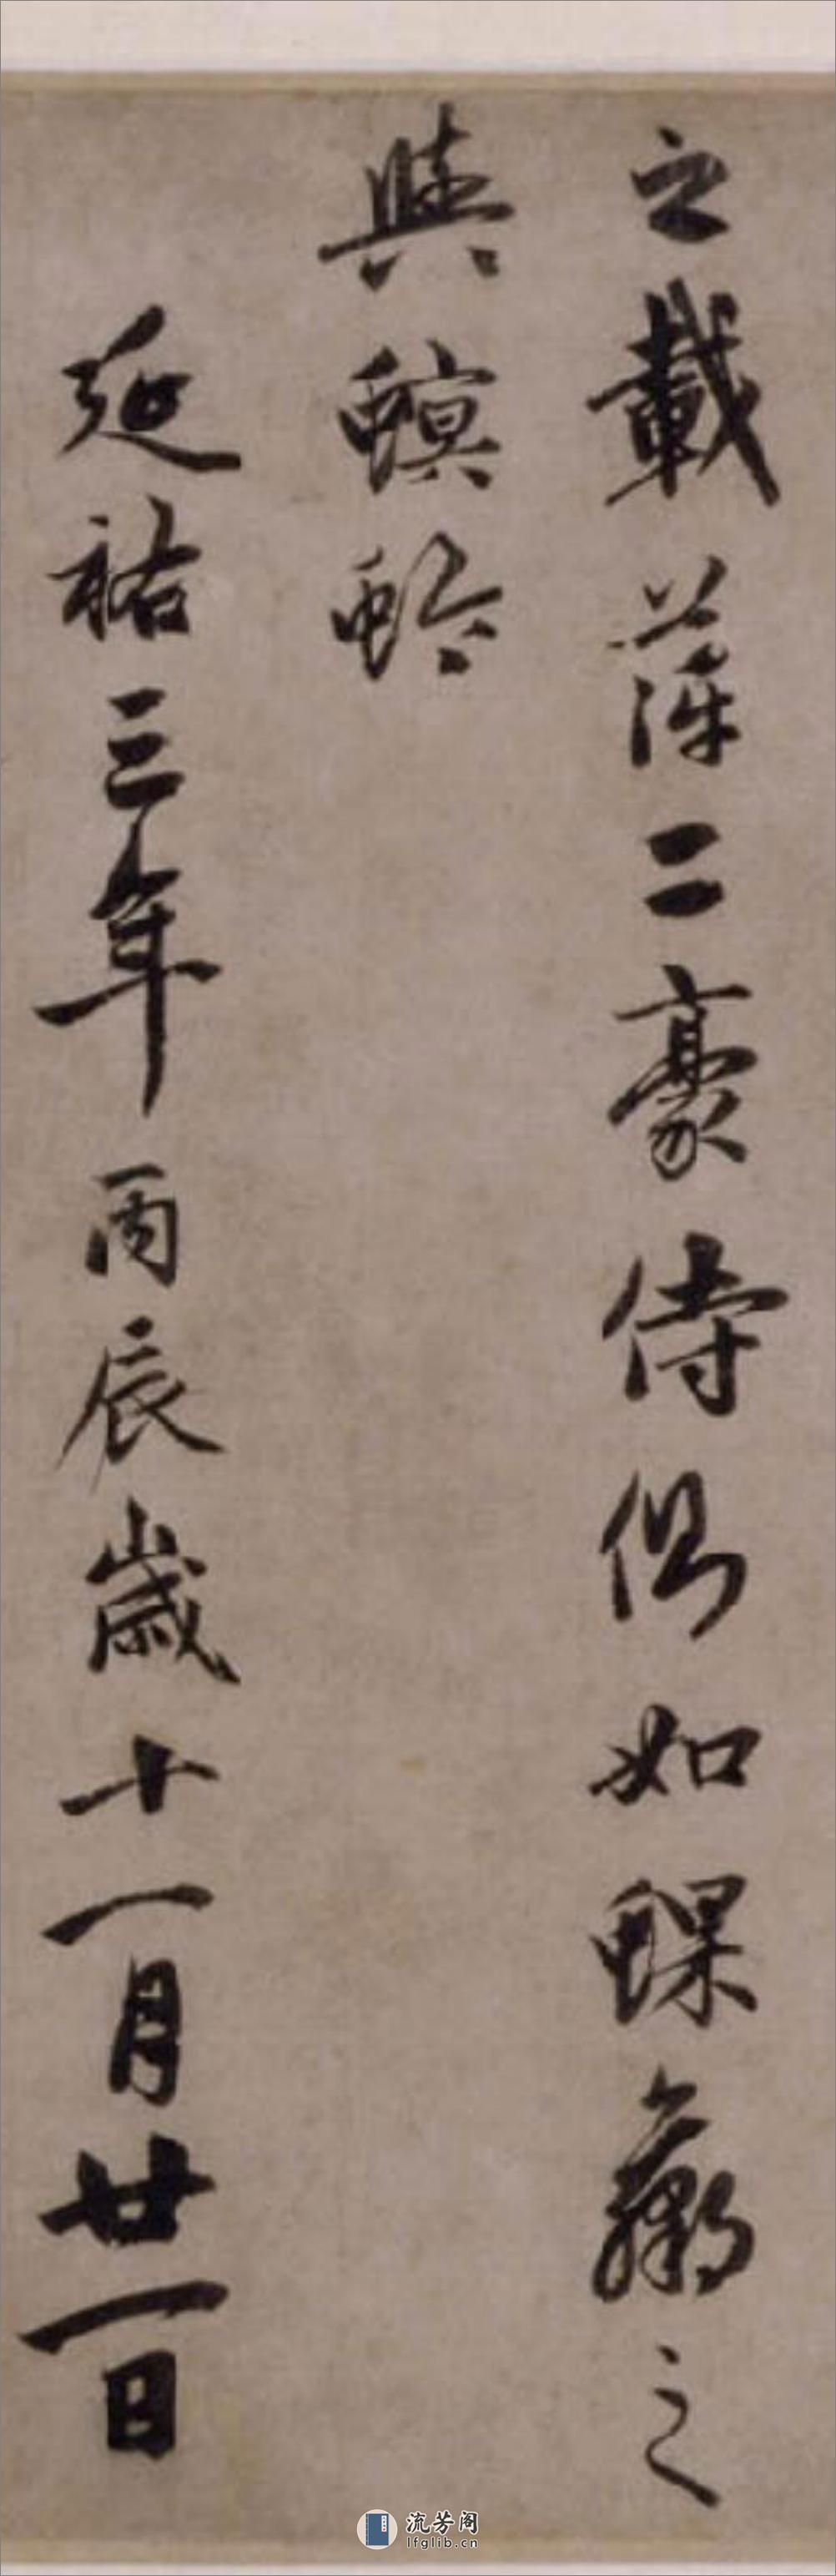 之載萍二豪侍側如蜾蠃之
與螟蛉
延祐三年丙辰歲十一月廿一日
流芳阁
lfglib.cn